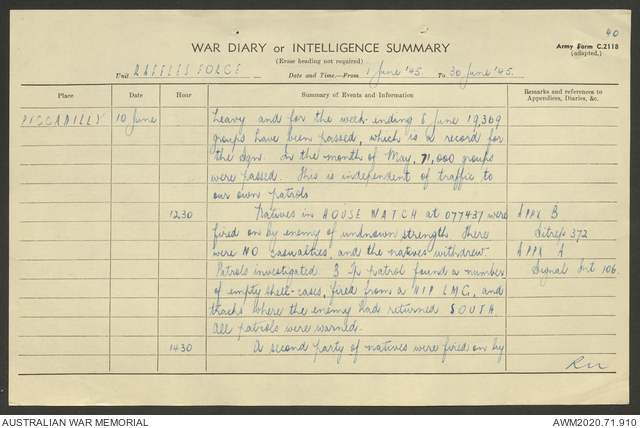 40
WAR DIARY or INTELLIGENCE SUMMARY
Army Form C.2118
(adapted.)
(Erase heading not required)
Unit RAFFLES FORCE Date and Time.—From 1 June '45. To 30 June '45.
Place Date Hour Summary of Events and Information Remarks and references to
Appendices, Diaries, &c.
PICCADILLY 10 June heavy and for the week ending 8 June 19,369
groups have been passed, which is a record for
the Sqn. In the month of May, 71,000 groups
were passed. This is independent of traffic to
our own patrols
1230 Natives in HOUSE MATCH at 077437 were APPX B
fired on by enemy of unknown strength. There Sitrep 372
were NO casualties, and the natives withdrew. APPX A
Patrols investigated. 3 Tp patrol found a number Signal 106.
of empty shell-cases, fired from a NIP LMG, and
tracks where the enemy had returned SOUTH.
All patrols were warned.
1430 A second party of natives were fired on by
AUSTRALIAN WAR MEMORIAL AWM2020.71.910